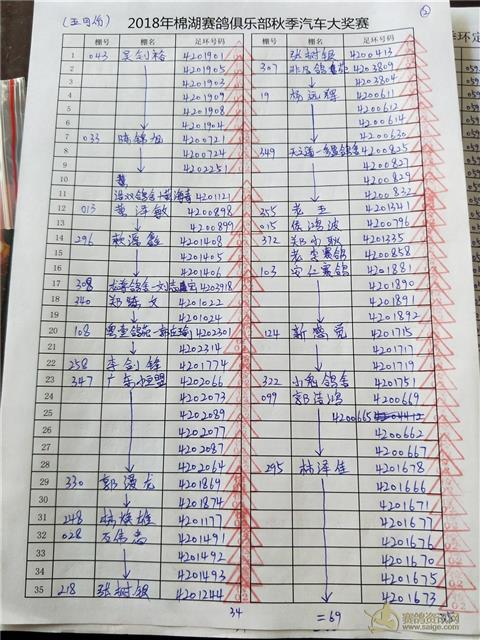 (五関份)
2018年棉湖赛鸽俱乐部秋季汽车大奖赛
棚号 棚名 足环号码 棚号 棚名 足环号码
1 043 吴剑裕 4201901 张树银 4200413
2 4201905 307 4203809
3 4201903 4203804
4 4201909 19 杨远程 4200611
5 4201908 4200612
6 4201904 4200614
7 033 陈锦旭 4200721 4200630
8 4200724 349 4200825
9 4202251 4200827
10 4200829
11 4201121 4200832
12 013 黄泽敏 4200898 255 老王 4201341
13 4200899 015 侯鸿波 4200796
14 296 4201408 372 4201335
15 4201405 4200858
16 4201406 103 安仁赛鸽 4201881
17 308 4203918 4201890
18 340 4201022 4201891
19 4201024 4201892
20 108 4202301 124 新感觉 4201715
21 4202314 4201717
22 258 李剑锋 4201774 4201719
23 347 4202066 322 小兔鸽舍 4201751
24 4202073 099 4200669
25 4202089 4200665
26 4202077 4200662
27 4202087 4200667
28 4202064 295 林泽佳 4201678
29 330 郭汉龙 4201869 4201666
30 4201874 4201671
31 248 杨焕雄 4201177 4201677
32 028 4201491 4201676
33 4201492 4201670
34 4201493 4201675
35 218 张树银 4201244 4201673
34 =69
赛鸽资讯网
www.saige.com